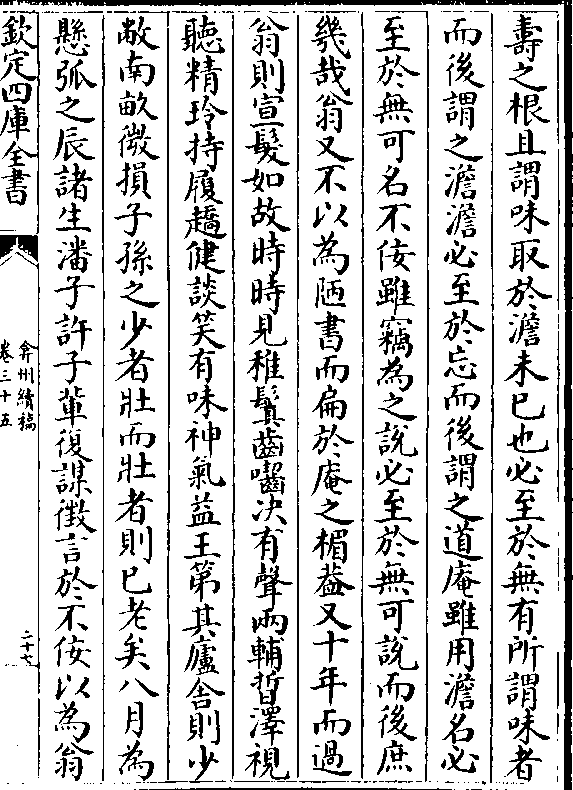 壽之根且謂味取於澹未已也必至於無有所謂味者
而後謂之澹澹必至於忘而後謂之道庵雖用澹名必
至於無可名不佞雖竊為之說必至於無可說而後庶
幾哉翁又不以為陋書而扁於庵之楣葢又十年而過
翁則宣髮如故時時見稚鬒齒囓決有聲兩輔晳澤視
聽精玲持履趫健談笑有味神氣益王第其廬舍則少
敝南畝微損子孫之少者壯而壯者則已老矣八月為
懸弧之辰諸生潘子許子輩復謀徵言於不佞以為翁
欽定四庫全書
弇州續稿
卷三十五
二十七